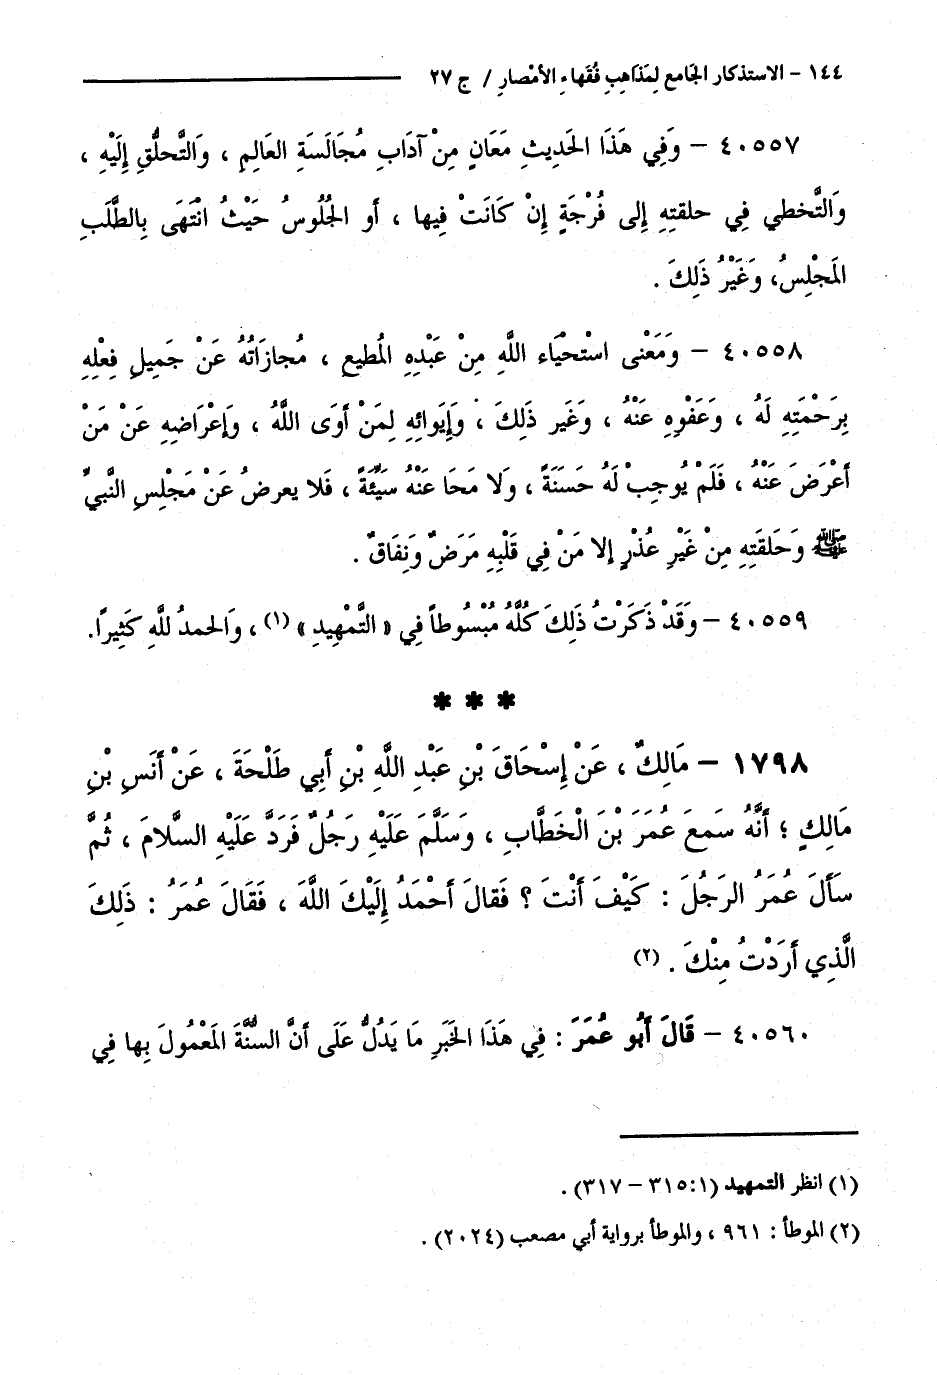 ١٤٤ - الاستذكار الجَامع لِمَذَاهِبِ فُقَهاءِ الأمْصارِ / ج ٢٧
٤٠٥٥٧ - وَفِي هَذَا الحَدِيثِ مَعَانٍ مِنْ آدَابِ مُجَالَسَةِ العَالِمِ ، وَالتَّحلُّقِ إِلَيْهِ ،
وَالتَّخطي فِي حلقتِهِ إِلى فُرْجَةٍ إِنْ كَانَتْ فِيها ، أَو الجُلُوسُ حَيْثُ انْتَهَى بِالطَّلَبِ
المَجْلِسُ، وَغَيْرُ ذَلِكَ .
٤٠٥٥٨ - وَمَعْنى استْحيَاء اللَّهِ مِنْ عَبْدِهِ المُطيعِ ، مُجازَاتُهُ عَنْ جَمِيلِ فِعْلِهِ
بِرَحْمَتِهِ لَهُ ، وَعَفْوِهِ عَنْهُ ، وَغَير ذَلِكَ ، وَإِيَوائِهِ لِمَنْ أَوَى اللَّهُ ، وَإِعْرَاضِهِ عَنْ مَنْ
أَعْرَضَ عَنْهُ ، فَلَمْ يُوجِبْ لَهُ حَسَنَةً ، وَلا مَحَا عَنْهُ سَيِّئَةً ، فَلا يعرضُ عَنْ مَجْلِسِ النَّبيِّ
ﷺ وَحَلقَتِهِ مِنْ غَيْرِ عُذْرٍ إلا مَنْ فِي قَلْبِهِ مَرَضٌ وَنِفَاقٌ .
٤٠٥٥٩ - وَقَدْ ذَكَرْتُ ذَلِكَ كُلَّهُ مُبْسُوطاً فِي « التَّمْهِيدِ » (١) ، وَالحمدُ للَّهِ كَثِيرًا.
* * *
١٧٩٨ - مَالِكٌ ، عَنْ إِسْحَاقَ بْنِ عَبْدِ اللَّهِ بْنِ أَبِي طَلْحَةَ ، عَنْ أَنَسِ بْنِ
مَالِكٍ ؛ أَنَّهُ سَمِعَ عُمَرَ بْنَ الْخَطَّابِ ، وَسَلَّمَ عَلَيْهِ رَجُلٌ فَرَدَّ عَلَيْهِ السَّلامَ ، ثُمَّ
سَأَلَ عُمَرُ الرَجُلَ : كَيْفَ أَنْتَ ؟ فَقالَ أَحْمَدُ إِلَيْكَ اللَّهَ ، فَقَالَ عُمَرُ : ذَلِكَ
الَّذِي أَرَدْتُ مِنْكَ . (٢)
٤٠٥٦٠ - قَالَ أَبُو عُمَرَ : فِي هَذَا الخَبَرِ مَا يَدُلُّ عَلَى أَنَّ السُنَّةَ المَعْمُولَ بِها فِي
(١) انظر التمهيد (٣١٥:١ - ٣١٧) .
(٢) الموطأ : ٩٦١ ، والموطأ برواية أبي مصعب (٢٠٢٤) .